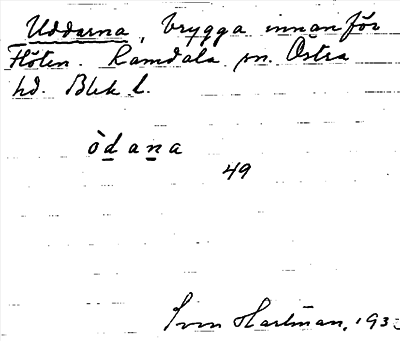 Uddarna, brygga innanför
Flöten. Ramdala sn. Östra
hd. Blek l.
òdana
49
Sven Hartman, 193